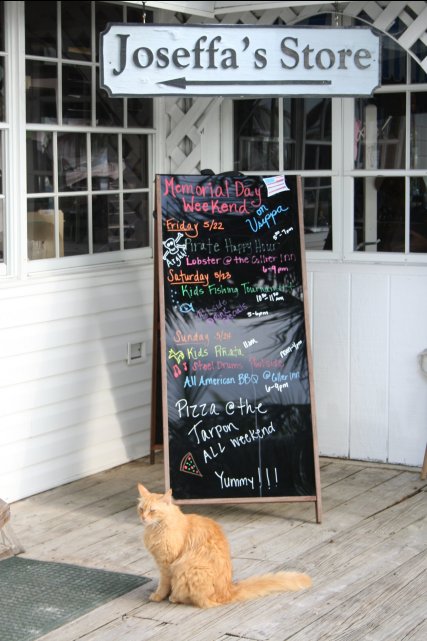 Joseffa's Store
Memorial Day
Weekend
on
Useppa
Friday 5/22
Pirate Happy Hour
5-7pm
Argh!
Lobster @ the Collier Inn
6-9pm
Saturday 5/23
Kids Fishing Tournament
Poolside
5-6pm
Sunday 5/24
Kids Piñata 11am
Steel Drums Poolside
All American BBQ @ Collier Inn
6-9pm
Pizza @ the
Tarpon
ALL weekend
Yummy!!!